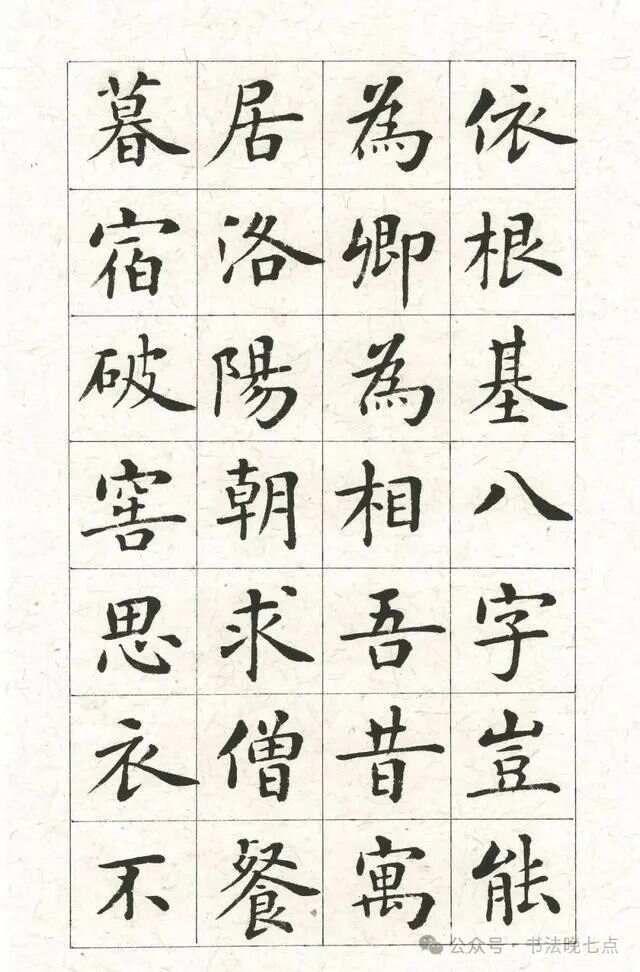 依根基八字豈能
為卿為相吾昔寓
居洛陽朝求僧餐
暮宿破窖思衣不
公众号·书法晚七点